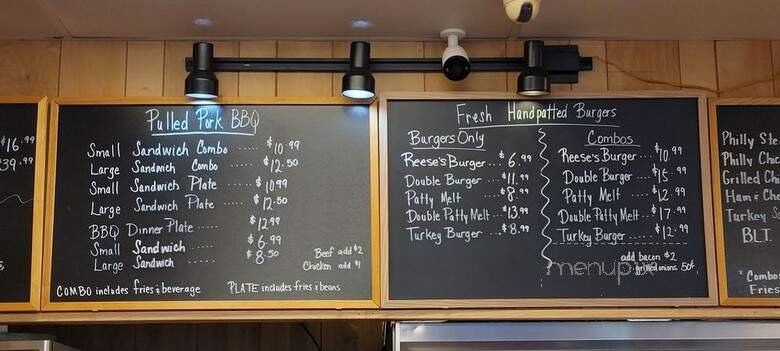 $16.99
$39.99
Pulled Pork BBQ
Small Sandwich Combo ..... $10.99
Large Sandwich Combo .... $12.50
Small Sandwich Plate .... $10.99
Large Sandwich Plate .... $12.50
BBQ Dinner Plate..... $12.99
Small Sandwich ..... $6.99
Large Sandwich ..... $8.50
Beef add $2
Chicken add $1
COMBO includes fries & beverage
PLATE includes fries & beans
Fresh Handpatted Burgers
Burgers Only
Reese's Burger... $6.99
Double Burger ...$11.99
Patty Melt ..... $8.99
Double Patty Melt...$13.99
Turkey Burger...$8.99
Combos
Reese's Burger...$10.99
Double Burger ...$15.99
Patty Melt ...$12.99
Double Patty Melt...$17.99
Turkey Burger....$12.99
add bacon $2
grilled onions 50¢
menupix
Philly Ste
Philly Chic
Grilled Chi
Ham & Che
Turkey S
BLT.
*Combo
Fries